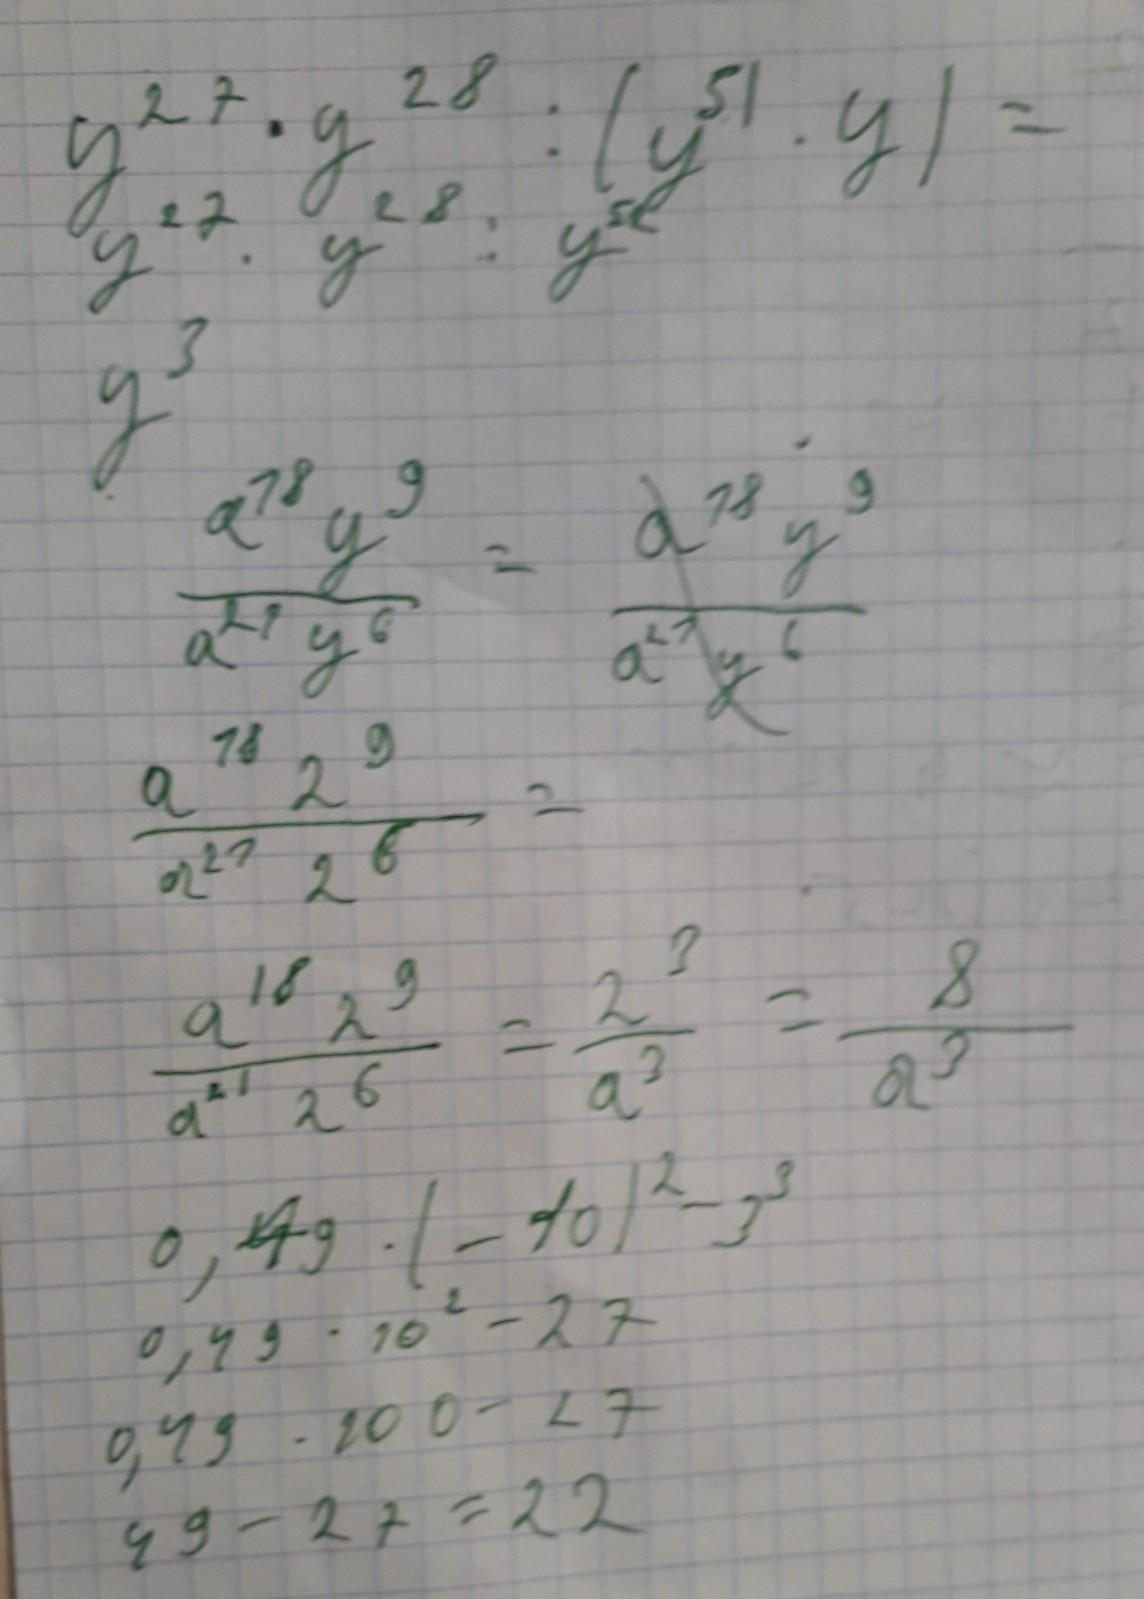 y²⁷ · y²⁸ : (y⁵¹ · y) =
y²⁷ · y²⁸ : y⁵²
y³
a¹⁸ y⁹ / a²¹ y⁶ = a¹⁸ y⁹ / a²¹ y⁶
a¹⁸ 2⁹ / a²¹ 2⁶ =
a¹⁸ 2⁹ / a²¹ 2⁶ = 2³ / a³ = 8 / a³
0,49 · (-10)² - 3³
0,49 · 10² - 27
0,49 · 100 - 27
49 - 27 = 22